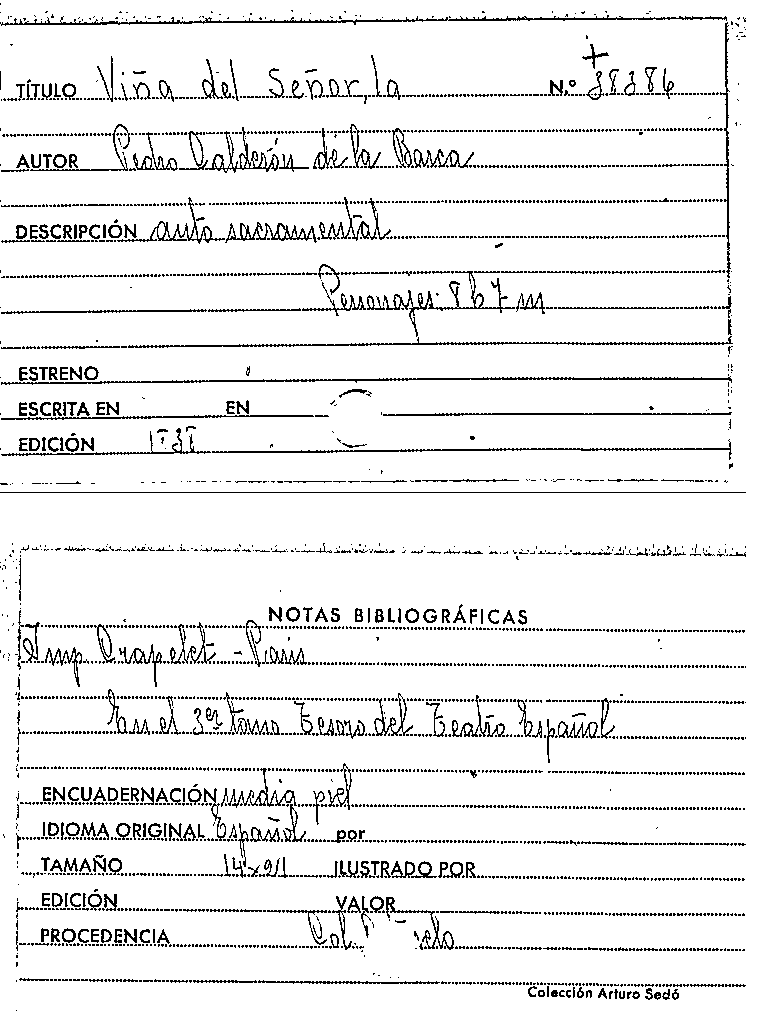 TÍTULO Viña del Señor, la N.º 38386
AUTOR Pedro Calderón de la Barca
DESCRIPCIÓN auto sacramental
Personajes: 8 h 7 m
ESTRENO
ESCRITA EN EN
EDICIÓN
NOTAS BIBLIOGRÁFICAS
Imp Crapelet - Paris
En el 3er tomo Tesoro del Teatro Español
ENCUADERNACIÓN media piel
IDIOMA ORIGINAL Español por
TAMAÑO 14 x 9/1 ILUSTRADO POR
EDICIÓN VALOR
PROCEDENCIA Col.
Colección Arturo Sedó